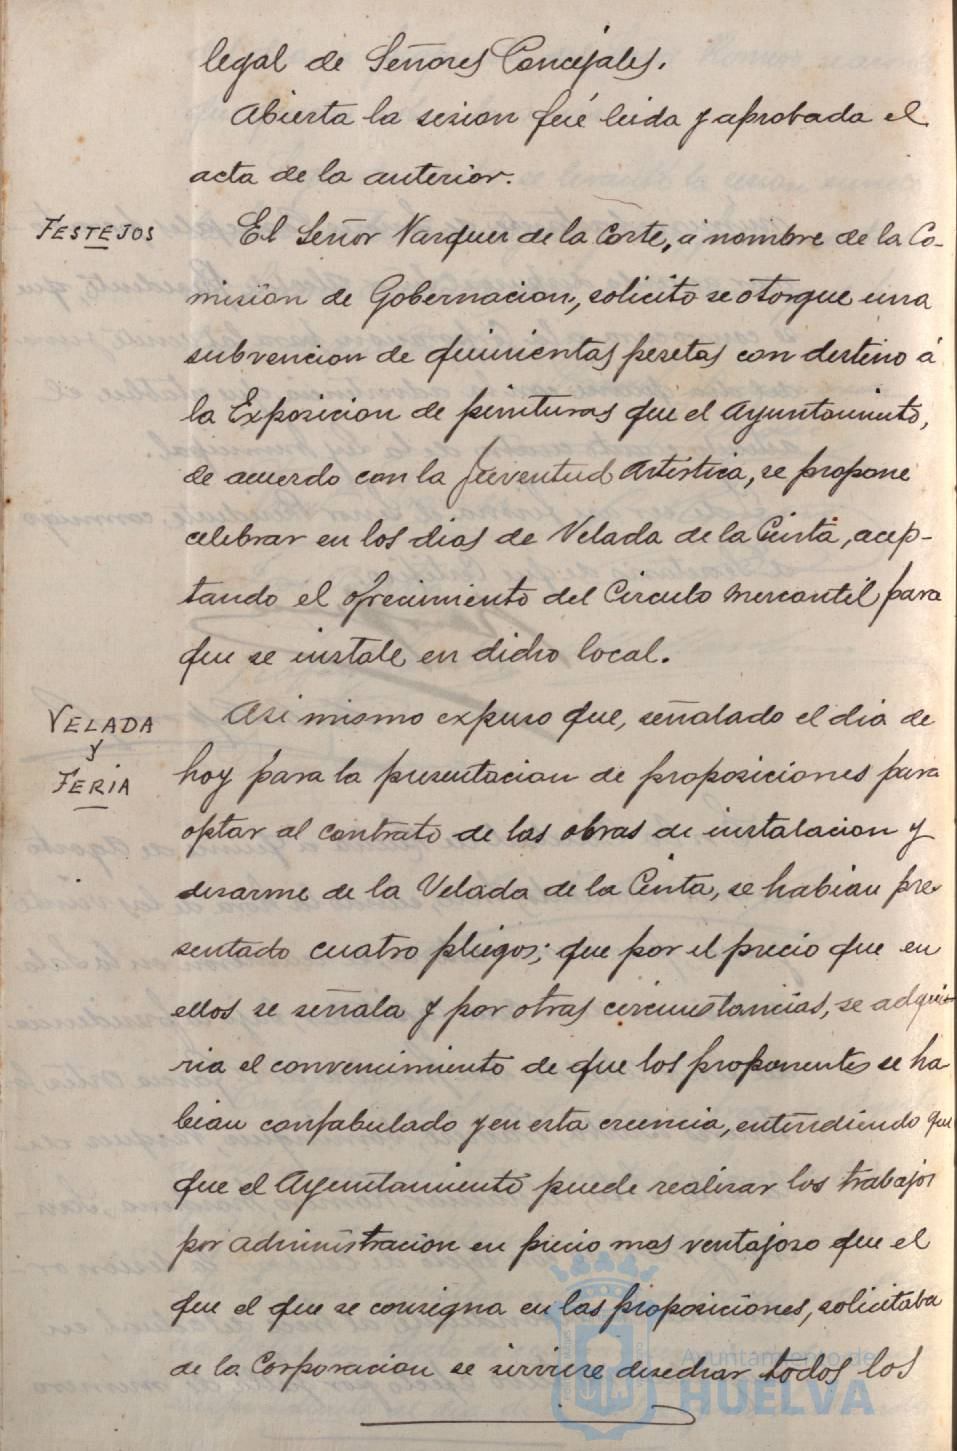 legal de Señores Concejales.
Abierta la sesion fué leida y aprobada el
acta de la anterior.
FESTEJOS
El Señor Vazquez de la Corte, á nombre de la Co-
mision de Gobernacion, solicito se otorgue una
subvencion de quinientas pesetas con destino á
la Exposicion de pinturas que el Ayuntamiento,
de acuerdo con la Juventud Artistica, se propone
celebrar en los dias de Velada de la Cinta, acep-
tando el ofrecimiento del Circulo Mercantil para
que se instale en dicho local.
VELADA
y
FERIA
Asi mismo expuso que, señalado el dia de
hoy para la presentacion de proposiciones para
optar al contrato de las obras de instalacion y
desarme de la Velada de la Cinta, se habian pre-
sentado cuatro pliegos; que por el precio que en
ellos se señala y por otras circunstancias, se adqui-
ria el convencimiento de que los proponentes se ha
bian confabulado y en esta creencia, entendiendo que
que el Ayuntamiento puede realizar los trabajos
por administracion en precio mas ventajoso que el
que el que se consigna en las proposiciones, solicitaba
de la Corporacion se sirviese desechar todos los
Ayuntamiento de
HUELVA